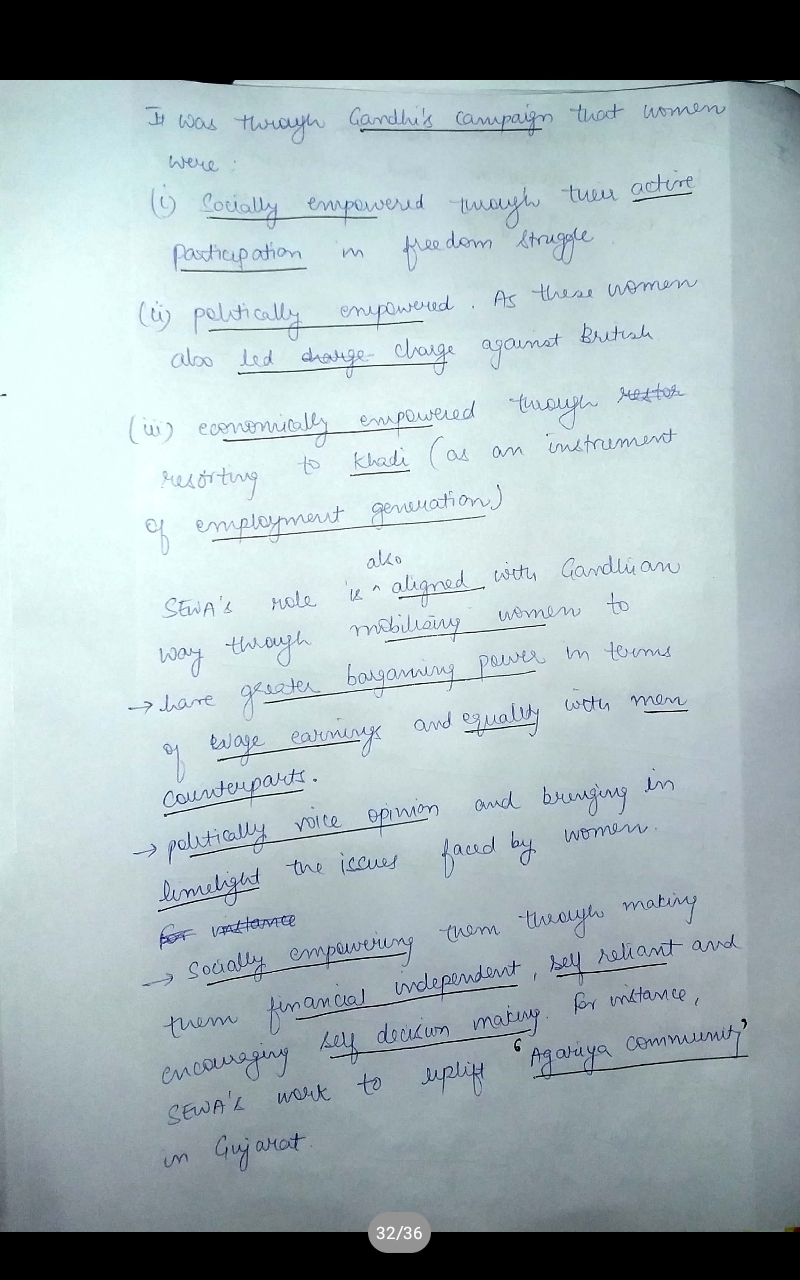 It was through Gandhi's campaign that women
were :
(i) Socially empowered through their active
participation in freedom struggle
(ii) politically empowered. As these women
also led charge charge against British
(iii) economically empowered through restor
resorting to Khadi (as an instrument
of employment generation)
also
SEWA's role is ^ aligned with Gandhian
way through mobilising women to
→ have greater bargaining power in terms
of wage earnings and equality with men
counterparts.
→ politically voice opinion and bringing in
limelight the issues faced by women.
for instance
→ Socially empowering them through making
them financial independent, self reliant and
encouraging self decision making. For instance,
SEWA's work to uplift 'Agariya community'
in Gujarat.
32/36